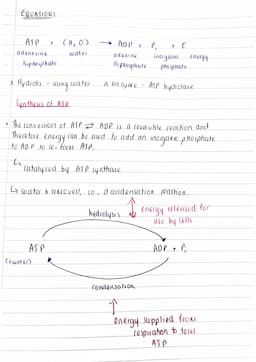 EQUATION:
ATP + (H₂O) → ADP + Pᵢ + E
adenosine water adenine inorganic energy
triphosphate diphosphate phosphate
Hydrolysis - using water Enzyme - ATP hydrolase
Synthesis of ATP
• The conversion of ATP ⇌ ADP is a reversible reaction and
therefore energy can be used to add an inorganic phosphate
to ADP to re-form ATP.
↳ catalysed by ATP synthase
↳ water is removed, so, a condensation reaction.
hydrolysis
energy released for
use by cells
ATP ADP + Pᵢ
(+water)
condensation
energy supplied from
respiration to form
ATP